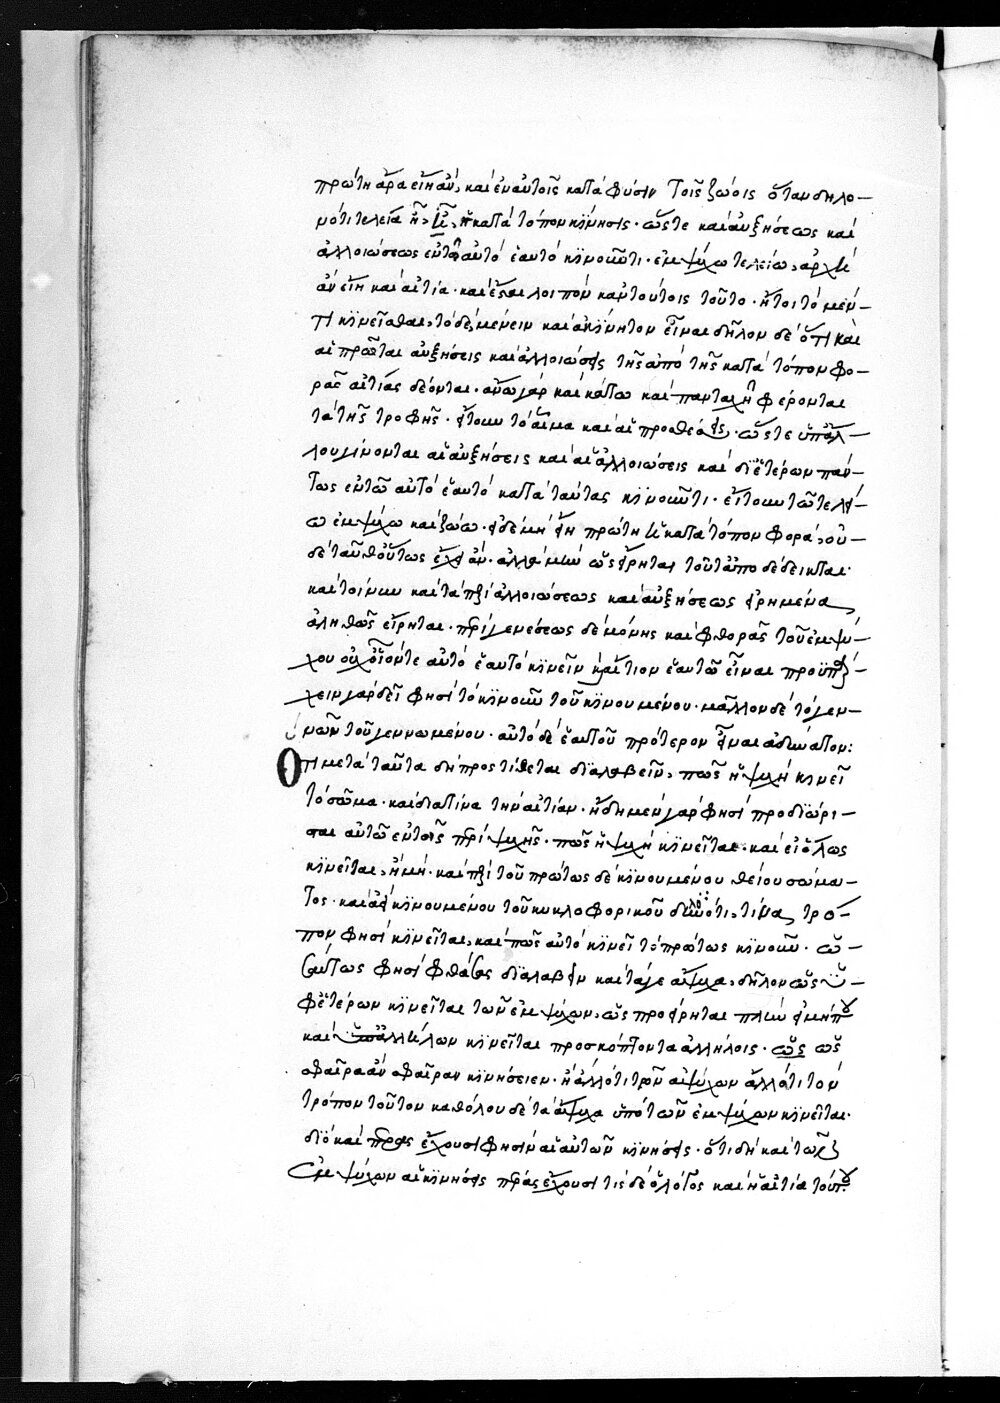 πρώτη ἄρα εἴη ἂν, καὶ ἐν αὐτοῖς κατὰ φύσιν τοῖς ζώοις ὅταν δηλο–
νότι τελεία ᾖ, ἡ κατὰ τόπον κίνησις· ὥστε καὶ αὐξήσεως καὶ
ἀλλοιώσεως ἐν τῶ αὐτὸ ἑαυτὸ κινοῦντι· ἐμψύχω τελείω, ἀρχὴ
ἂν εἴη καὶ αἰτία· καὶ λοιπὸν κἀν τούτοις τοῦτο· ἤτοι τὸ μέν–
τι κινεῖσθαι, τὸ δὲ μένειν καὶ ἀκίνητον εἶναι δῆλον δὲ ὅτι καὶ
αἱ πρῶται αὐξήσεις καὶ ἀλλοιώσεις τῆς ἀπὸ τῆς κατὰ τόπον φο–
ρᾶς αἰτίας δέονται· ἄνω γὰρ καὶ κάτω καὶ πανταχῆ φέρονται
τὰ τῆς τροφῆς· ἤτουν τὸ αἷμα καὶ αἱ προσθέσεις· ὥστε ὑπ' ἄλ–
λου γίνονται αἱ αὐξήσεις καὶ αἱ ἀλλοιώσεις καὶ δι' ἑτέρων πάν–
τως ἐν τῶ αὐτὸ ἑαυτὸ κατὰ ταύτας κινοῦντι· εἴτουν τῶ τελεί–
ω ἐμψύχω καὶ ζώω· εἰ δὲ μὴ εἴη πρώτη ἡ κατὰ τόπον φορὰ, οὐ–
δὲ ταῦθ' οὕτως ἔχει ἄν· ἀλλὰ μὴν ὡς εἴρηται τοῦτ' ἀποδέδεικται·
καὶ τοίνυν καὶ τὰ περὶ ἀλλοιώσεως καὶ αὐξήσεως εἰρημένα
ἀληθῶς εἴρηται· περὶ γενέσεως δὲ μόνης καὶ φθορᾶς τοῦ ἐμψύ–
χου οὐχ οἷόντε αὐτὸ ἑαυτὸ κινεῖν καὶ αἴτιον ἑαυτῶ εἶναι προϋπάρ–
χειν γὰρ δεῖ φησὶ τὸ κινοῦν τοῦ κινουμένου· μᾶλλον δὲ τὸ γεν–
νῶν τοῦ γεννωμένου· αὐτὸ δὲ ἑαυτοῦ πρότερον εἶναι ἀδύνατον:
Ὅτι μετὰ ταῦτα δὴ προστίθεται διαλαβεῖν, πῶς ἡ ψυχὴ κινεῖ
τὸ σῶμα· καὶ διὰ τίνα τὴν αἰτίαν· ἤδη μὲν γὰρ φησὶ προδιώρι–
σται αὐτῶ ἐν τοῖς περὶ ψυχῆς· πῶς ἡ ψυχὴ κινεῖται· καὶ εἰ ὅλως
κινεῖται, ἢ μή· καὶ περὶ τοῦ πρώτως δὲ κινουμένου θείου σώμα–
τος· καὶ ἀεὶ κινουμένου τοῦ κυκλοφορικοῦ δηλονότι, τίνα τρό–
πον φησὶ κινεῖται, καὶ πῶς αὐτὸ κινεῖ τὸ πρώτως κινοῦν· ὡ–
σαύτως φησὶ φθάσας διαλαβεῖν καὶ τάγε ἄψυχα, δῆλον ὡς ὑ–
φ' ἑτέρων κινεῖται τῶν ἐμψύχων, ὡς προείρηται πλὴν εἰ μή που
καὶ ὑπ' ἀλλήλων κινεῖται προσκόπτοντα ἀλλήλοις· ὡς
σφαῖρα ἂν σφαῖραν κινήσειεν· ἢ ἄλλό τι τῶν ἀψύχων ἄλλό τι τὸν
τρόπον τοῦτον καθόλου δὲ τὰ ἄψυχα ὑπὸ τῶν ἐμψύχων κινεῖται·
διὸ καὶ πέρας ἔχουσι φησὶν αἱ αὐτῶν κινήσεις· ὅτι δὴ καὶ τῶν
ἐμψύχων αἱ κινήσεις πέρας ἔχουσι τίς δὲ ὁ λόγος καὶ ἡ αἰτία τούτου·